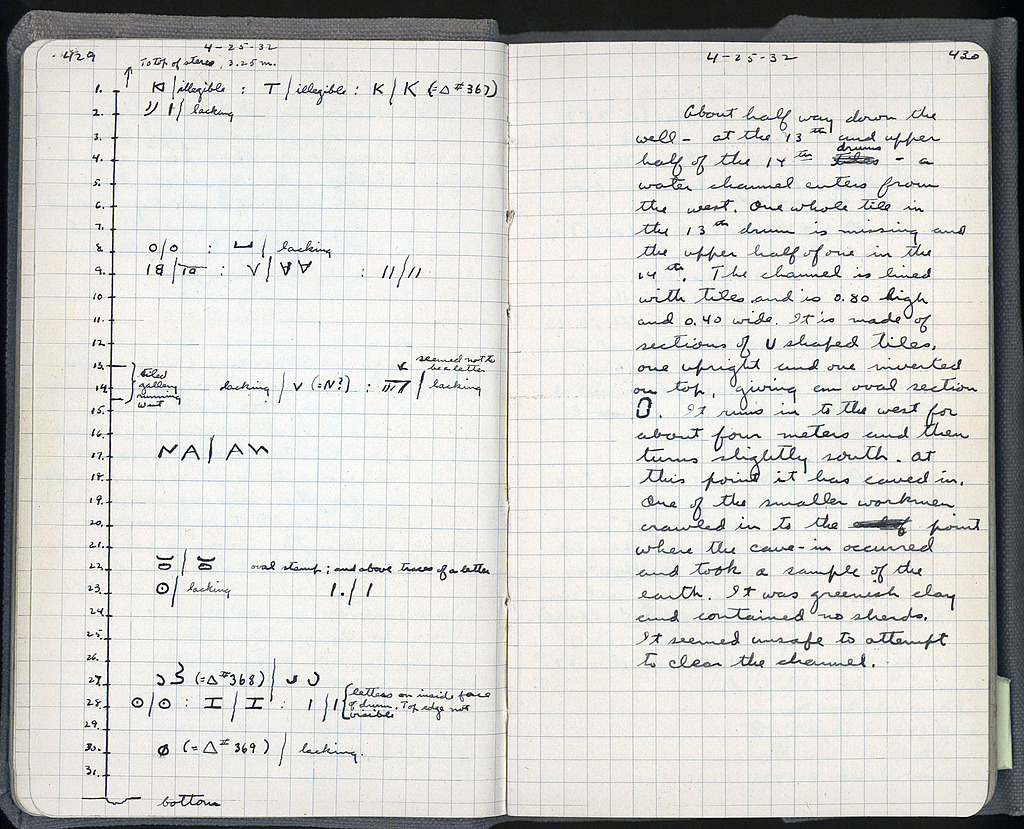 429
4-25-32
To top of stereo, 3.25 m.
1. K / illegible : T / illegible : K / K (=Δ#367)
2. / lacking
3.
4.
5.
6.
7.
8. o/o : / lacking
9. : V / : 11/11
10
11.
12.
13.
seemed not to
be a letter
tiled
gallery
running
west
14. lacking / v (=N?) : / lacking
15.
16.
17. NA / AN
18.
19.
20.
21.
22. oval stamp; and above traces of a letter
23. ⊙/ lacking 1./1
24.
25.
26.
27. (=Δ#368) /
28. ⊙/⊙ : I / I : 1 / 1 { letters on inside face
of drum. Top edge not
visible
29.
30. ø (=Δ#369) / lacking.
31.
bottom
4-25-32
430
About half way down the
well - at the 13th and upper
half of the 14th drums - a
water channel enters from
the west. One whole tile in
the 13th drum is missing and
the upper half of one in the
14th. The channel is lined
with tiles and is 0.80 high
and 0.40 wide. It is made of
sections of U shaped tiles,
one upright and one inverted
on top, giving an oval section
0. It runs in to the west for
about four meters and then
turns slightly south. At
this point it has caved in.
One of the smaller workmen
crawled in to the point
where the cave-in occurred
and took a sample of the
earth. It was greenish clay
and contained no sherds.
It seemed unsafe to attempt
to clear the channel.